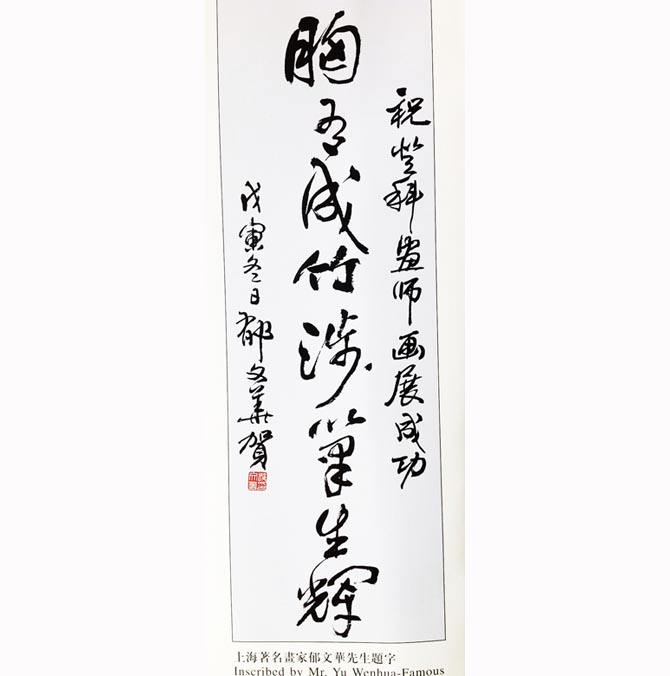 祝登科画师画展成功
胸有成竹涉笔生輝
戊寅冬日郁文華賀
上海著名畫家郁文華先生題字
Inscribed by Mr. Yu Wenhua-Famous